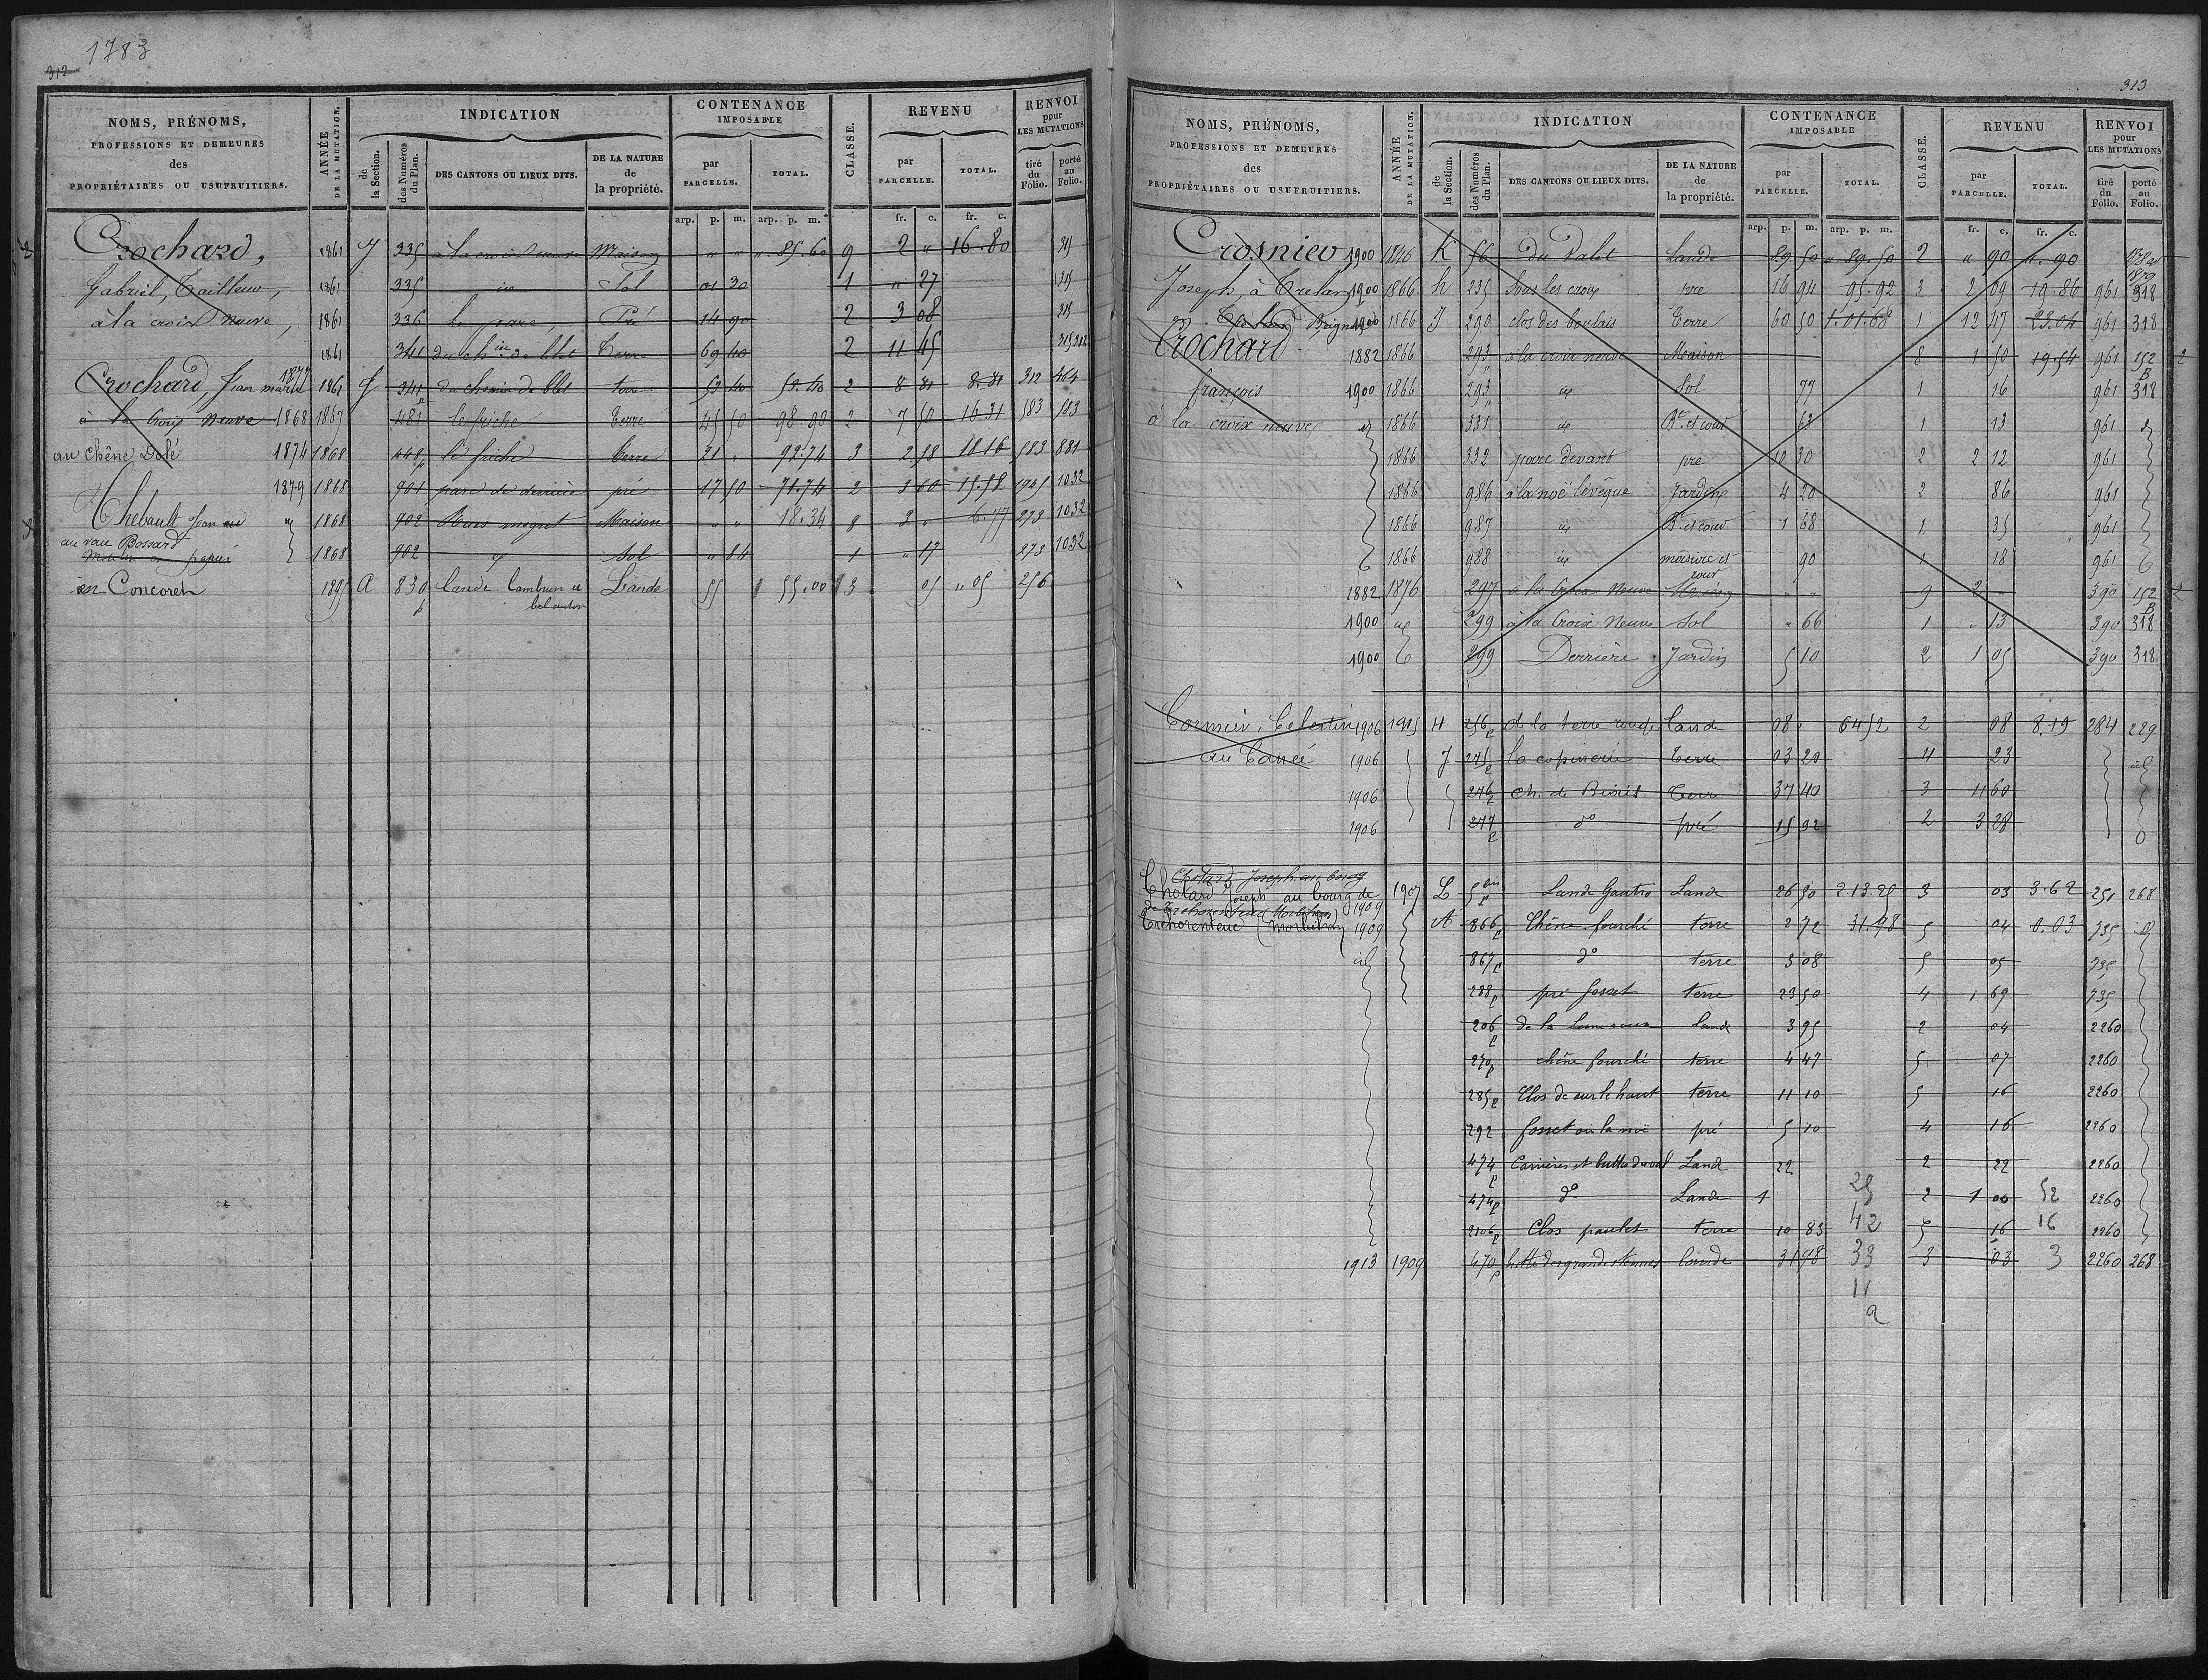 1783
312
NOMS, PRÉNOMS, PROFESSIONS ET DEMEURES des PROPRIÉTAIRES OU USUFRUITIERS.
ANNÉE DE LA MUTATION.
INDICATION
de la Section.
des Numéros du Plan.
DES CANTONS OU LIEUX DITS.
DE LA NATURE de la propriété.
CONTENANCE IMPOSABLE
par PARCELLE.
TOTAL.
CLASSE.
REVENU
par PARCELLE.
TOTAL.
RENVOI pour LES MUTATIONS
tiré du Folio.
porté au Folio.
arp. p. m. arp. p. m. fr. c. fr. c.
Crochard, 1861 J 335 à la croix neuve Maison " " " 85.60 9 2 " 16.80
Gabriel, Tailleur, 1861 335 id Sol 01 30 1 " 27
à la croix neuve, 1861 336 le parc, Pré 14 90 2 3 08
1861 341 du ch.in de blet Terre 69 40 2 11 45
Crochard, Jean marie 1877 1861 J 341 du chemin de blet terre 53 40 53.40 2 8 81 8.81 312 464
à la Croix Neuve 1868 1867 481 le friche terre 45 50 98.90 2 7 50 16 31 583 583
au Chêne Dolé 1874 1868 448p le friche terre 21 " 92.74 3 2 58 10 16 583 881
1879 1868 901 parc de derrière pré 17 50 71.74 2 3 60 15.58 1032
Thebault Jean au 1868 902 Maison " " 18.34 8 3 " 6.77 273 1032
au vau Bossard
1868 902 id Sol " 84 1 " 17 273 1032
en Concoret 1895 A 830p Lande Lambrun et Lande 55 55.00 3 05 " 05 256
bel autor
313
NOMS, PRÉNOMS, PROFESSIONS ET DEMEURES des PROPRIÉTAIRES OU USUFRUITIERS.
ANNÉE DE LA MUTATION.
INDICATION
de la Section.
des Numéros du Plan.
DES CANTONS OU LIEUX DITS.
DE LA NATURE de la propriété.
CONTENANCE IMPOSABLE
par PARCELLE.
TOTAL.
CLASSE.
REVENU
par PARCELLE.
TOTAL.
RENVOI pour LES MUTATIONS
tiré du Folio.
porté au Folio.
arp. p. m. arp. p. m. fr. c. fr. c.
Crosnier 1900 1846 K 56 du Palet Lande 89 50 " 89.50 2 " 90 " 90
Joseph, à Trelan 1900 1866 h 235 Sous les croix pré 16 94 95.92 3 2 09 19.86 961 318
1900 1866 J 290 clos des boulais Terre 60 50 1.01.68 1 12 47 23.04 961 318
Crochard 1882 1866 293 à la croix neuve Maison 8 1 50 19.54 961 152 B
françois 1900 1866 293 id Sol 77 1 16 961 318
à la croix neuve id 1866 331 id Bt. et cour 63 1 13 961 id
1866 332 parc devant pré 10 30 2 2 12 961
1866 986 à la noë lévêque Jardin 4 20 2 86 961
1866 987 id Bt. et cour 1 68 1 35 961
1866 988 id masure et cour 90 1 18 961
1882 1876 297 à la Croix Neuve Maison " " 9 2 " 390 152 B
1900 id 299 à la Croix Neuve Sol " 66 1 " 13 390 318
1900 299 Derrière Jardin 5 10 2 1 05 390 318
Cormier, Celestin 1906 1905 H 256p de la terre rouge Lande 08 " 6452 2 08 8.19 284 229
au Cancé 1906 J 275p la copinerie Terre 03 20 4 23 id
1906 276p Ch. de Terre 37 40 3 4 60
1906 277p do pré 15 92 2 3 28
Chotard, Joseph au bourg
Chotard Joseph au bourg de 1907 L 5bis p Lande Gautro Lande 26 50 2.13.25 3 03 3.62 251 268
de Tréhorenteuc Morbihan 1909
Tréhorenteuc (Morbihan) 1909 A 866p Chêne fourché terre 2 72 31.98 5 04 0.03 735 id
id 867p do terre 3 08 5 05 735
288p pré fosset terre 23 50 4 1 69 735
206p Lande 3 95 2 04 2260
270p chêne fourché terre 4 47 5 07 2260
285p Clos de sur le haut terre 11 10 5 16 2260
292 fosset ou la noë pré 5 10 4 16 2260
474p Carrières et butte du val Lande 22 2 22 2260
474p do Lande 1 25 2 1 00 52 2260
2106p Clos paulet terre 10 83 42 5 16 16 2260
1913 1909 470p butte des grandes tennes lande 31 98 33 3 03 3 2260 268
11
a